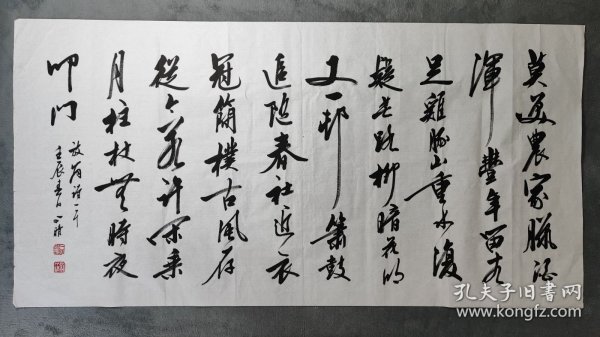 莫笑農家臘酒
渾豐年留客
足雞豚山重水復
疑无路柳暗花明
又一邨簫鼓
追随春社近衣
冠簡樸古風存
從今若許閑乘
月拄杖無時夜
叩门
放翁詩一首
壬辰春
孔夫子旧书网
www.kongfz.com